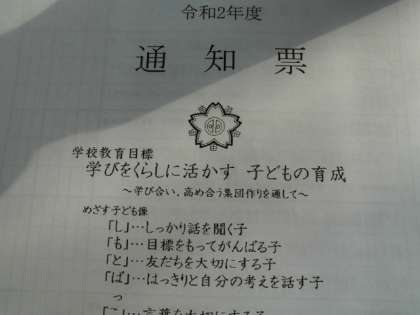 令和2年度
通知票
学校教育目標
学びをくらしに活かす 子どもの育成
～学び合い、高め合う集団作りを通して～
めざす子ども像
「し」…しっかり話を聞く子
「も」…目標をもってがんばる子
「と」…友だちを大切にする子
「ば」…はっきりと自分の考えを話す子
っ
「こ」…言葉を大切にする子